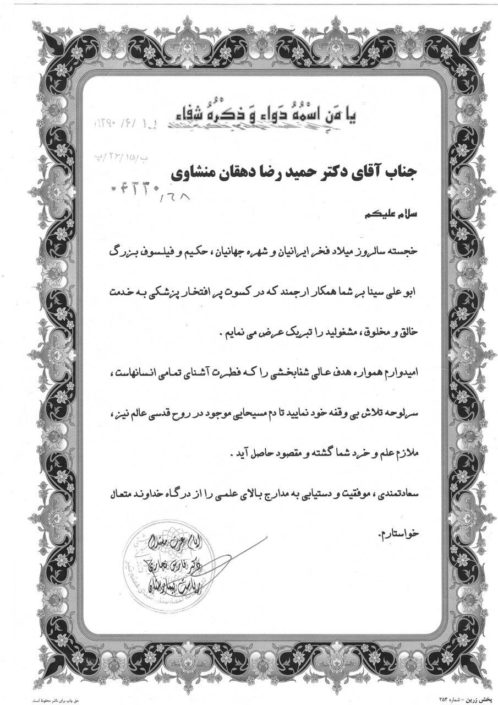 يا مَنِ اسْمُهُ دَواء وَ ذِكْرُهُ شِفاء
۱۳۹۰/۶/۱
ب/۲۶/۱۵/پ
جناب آقای دکتر حمید رضا دهقان منشاوی
سلام علیکم
خجسته سالروز میلاد فخر ایرانیان و شهره جهانیان ، حکیم و فیلسوف بزرگ
ابو علی سینا بر شما همکار ارجمند که در کسوت پر افتخار پزشکی به خدمت
خالق و مخلوق ، مشغولید را تبریک عرض می نمایم .
امیدوارم همواره هدف عالی شفابخشی را که فطرت آشنای تمامی انسانهاست ،
سرلوحه تلاش بی وقفه خود نمایید تا دم مسیحایی موجود در روح قدسی عالم نیز ،
ملازم علم و خرد شما گشته و مقصود حاصل آید .
سعادتمندی ، موفقیت و دستیابی به مدارج بالای علمی را از درگاه خداوند متعال
خواستارم.
دکتر
ریاست بیمارستان
پخش زرین - شماره ۲۸۴
حق چاپ برای ناشر محفوظ است.